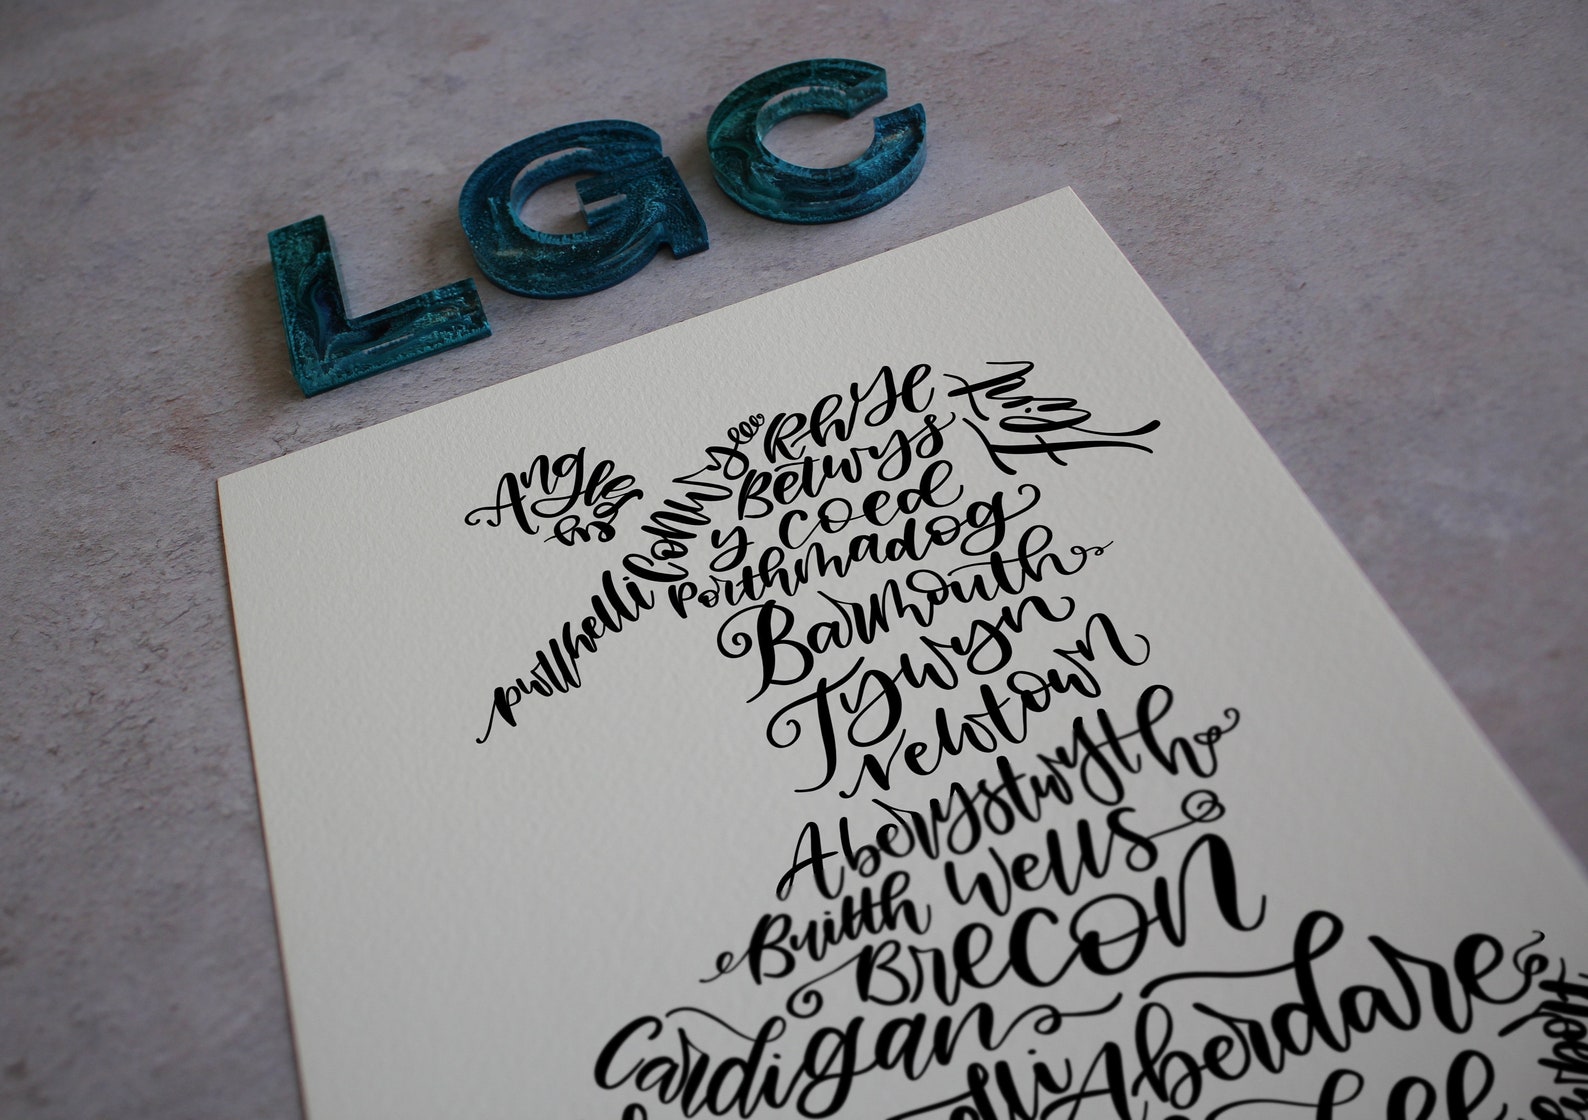 LGC
Anglesey
Conwy
Rhyl
Flint
Betwys
y coed
Pwllheli
Porthmadog
Barmouth
Tywyn
newtown
Aberystwyth
Builth Wells
Brecon
Cardigan
Aberdare